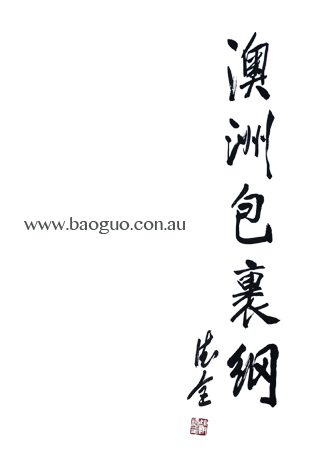 澳洲包裹網
www.baoguo.com.au